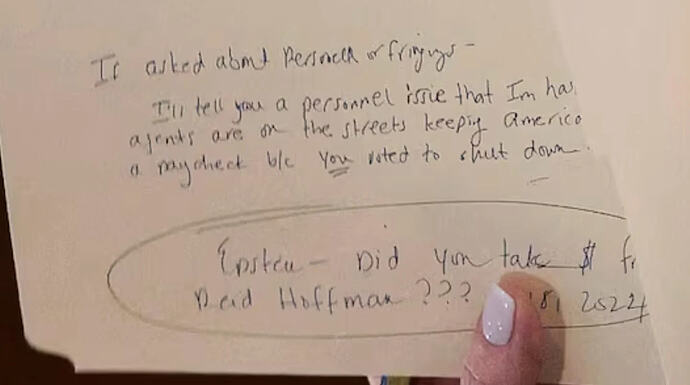 If asked about Personell or firings –
I'll tell you a personnel issue that Im hav
agents are on the streets keeping America
a paycheck b/c you voted to shut down.
Epstein – Did you take $ fr
Reid Hoffman ???